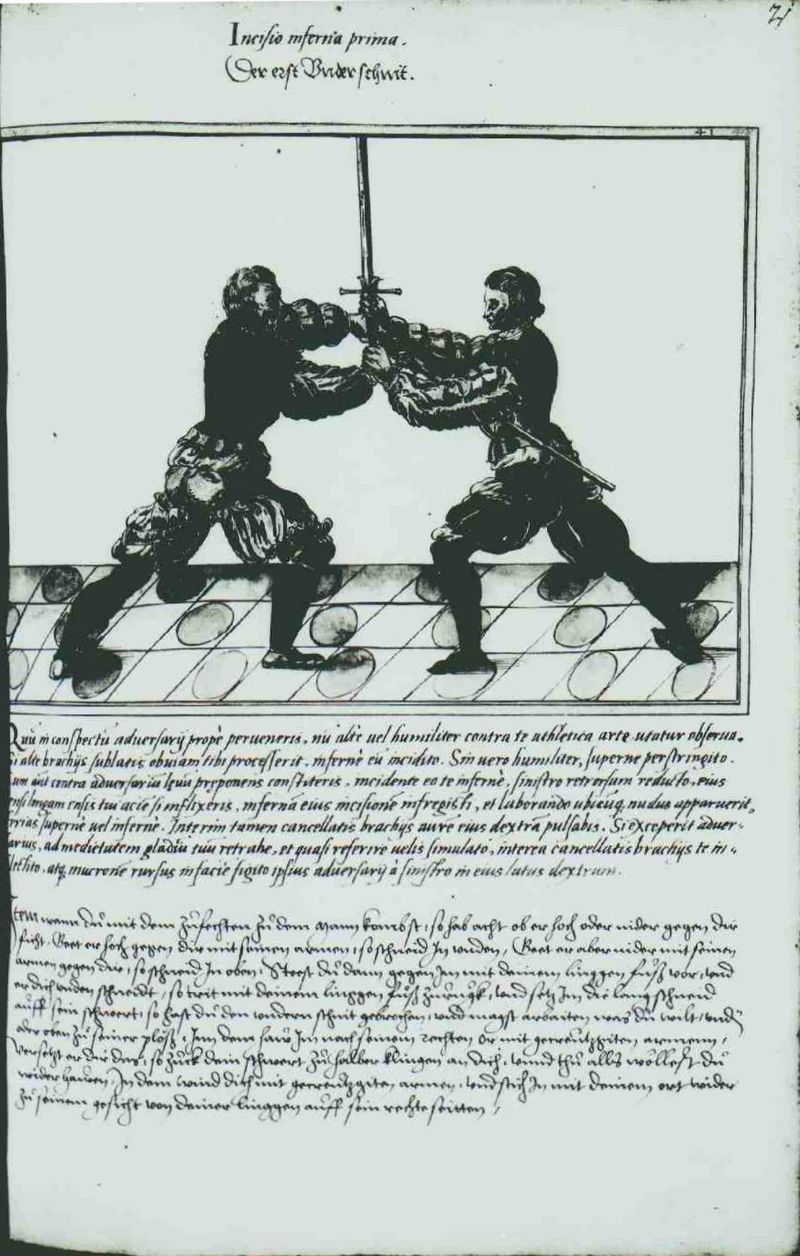 21
Incisio inferna prima.
Der erst Vnder schnit.
41
Quu in conspectu adversarij propè perveneris, nũ altè vel humiliter contra te athletica arte utatur observa.
si altè brachijs sublatis obviam tibi processerit, infernè eũ incidito. Sin vero humiliter, supernè perstringito.
contra adversariũ lęvũ preponens constiteris, incidente eo te infernè, sinistro retrorsum reducto, eius
ensi longam ensis tui aciẽ si inflixeris, infernã eius incisionẽ infregisti, et laborando ubicũq nudus apparuerit,
supernè vel infernè. Interim tamen cancellatis brachijs aurẽ eius dextrã pulsabis. Si exceperit adver-
arius, ad medietatem gladiũ tuũ retrahe, et quasi referire velis simulato, interea cancellatis brachijs te in-
atq mucronẽ rursus in faciẽ figito ipsius adversarij à sinistro in eius latus dextrum.
Item wann dũ mit dem zũfechten zũ dem mann kombst, so hab acht ob er hoch oder nider gegen dir
ficht, Geet er hoch gegen dir mit seinen armen, so schneid In vnden, Geet er aber nider mit seinen
armen gegen dir, so schneid In oben, Steest dũ dann gegen Im mit deinem linggen fũß vor, vnd
er dich vnden schneidt, so trit mit deinem linggen fũß zũrugk, vnd setz Im die lang schneid
auff sein schwert, so hast dũ den vndern schnit gebrochen, vnd magst arbaiten was dũ wilt, vnden
oder oben zũ seiner plöß, Inn dem haw Im nach seinem rechten or mit gecreutzgiten armenn,
versetzt er dir das, so zuck dein schwert zũ halber klingen an dich, vnnd thũ alls wöllest dũ
wider hauen, In dem wind dich mit gecreutzgiten armen, vnd stich In mit deinem ort wider
zũ seinem gesicht von deiner linggen auff sein rechte seitten,